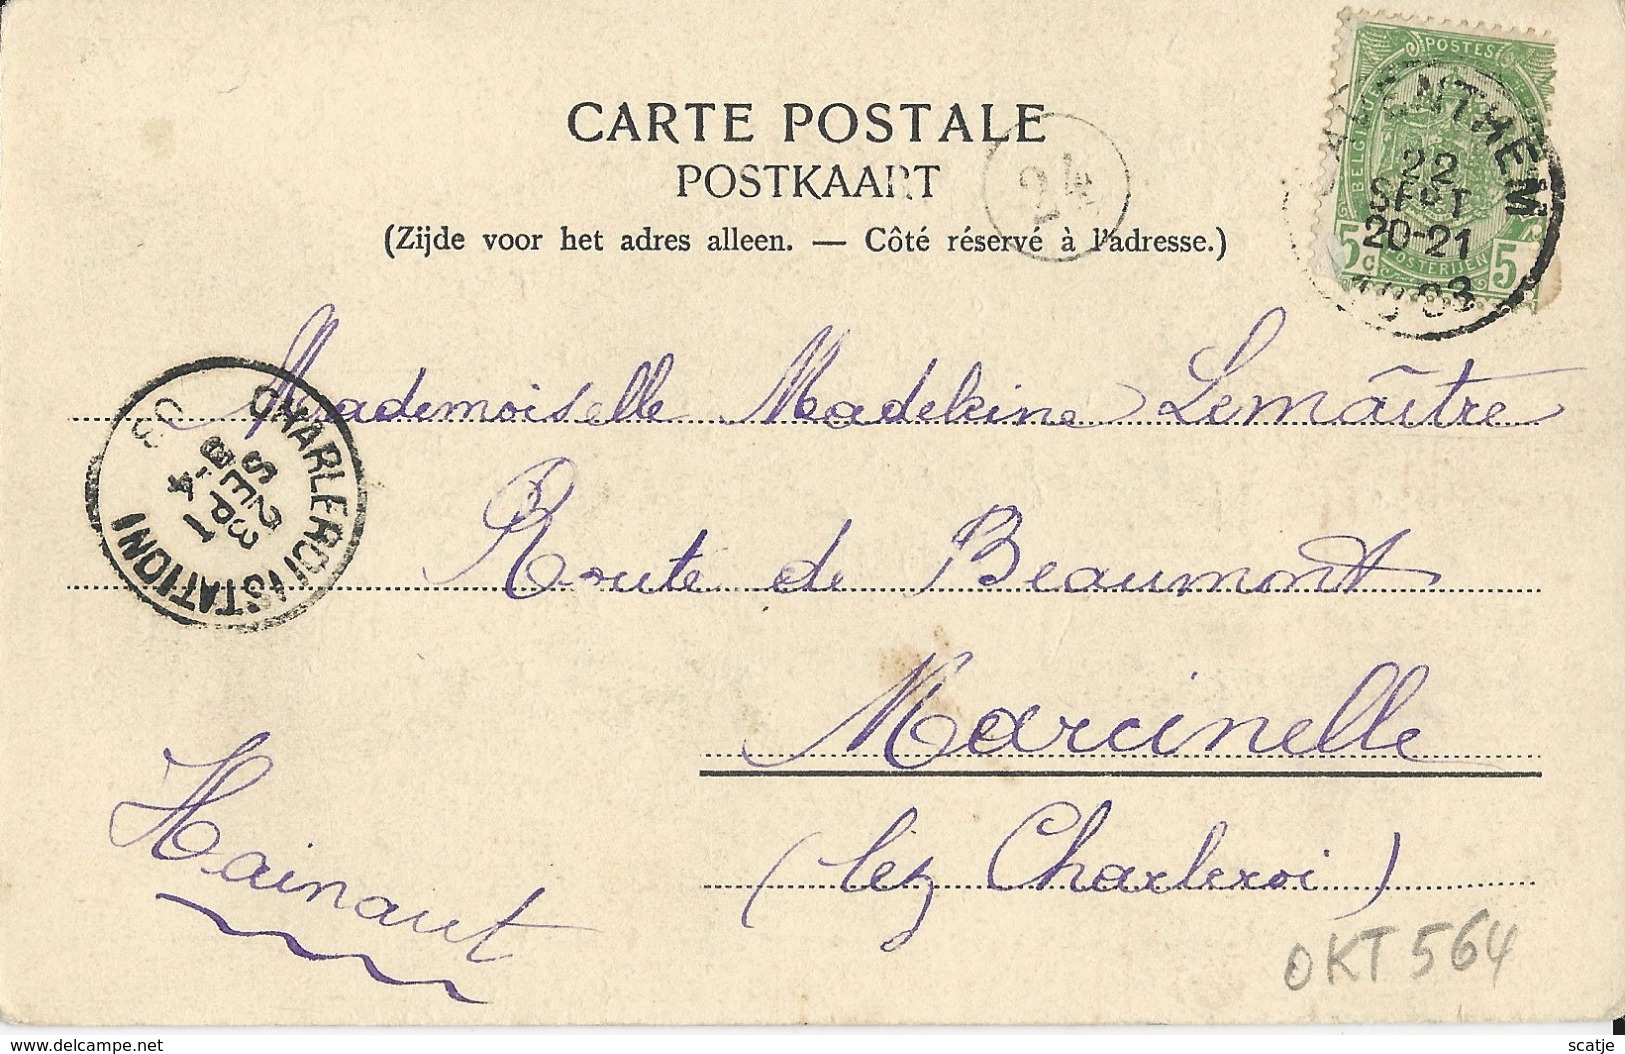 CARTE POSTALE
POSTKAART
(Zijde voor het adres alleen. — Côté réservé à l'adresse.)
24
POSTES
BELGIQUE
POSTERIJEN
5c 5
VENTHEM
22
SEPT
20-21
03
Mademoiselle Madeleine Lemaître
Route de Beaumont
Marcinelle
(lez Charleroi)
Hainaut
CHARLEROI (STATION)
23 SEPT
03
OKT 564
delcampe.net
scatje